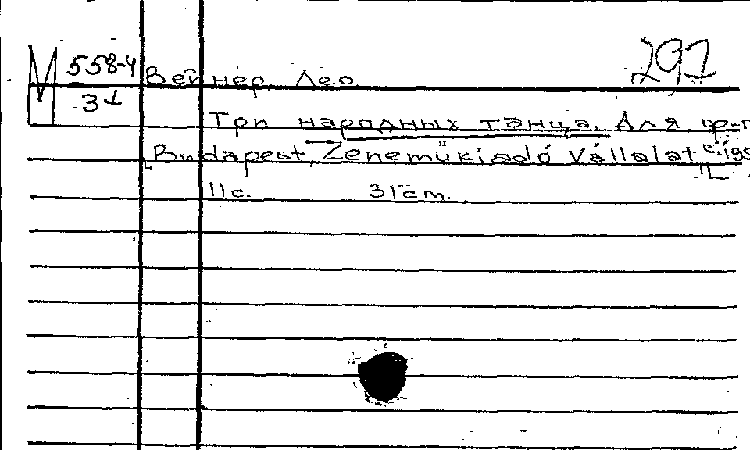 М 558-4 Вейнер, Лео 297
31
Три народных танца. Для
Budapest, Zeneműkiadó Vállalat
11 с. 31 cm.